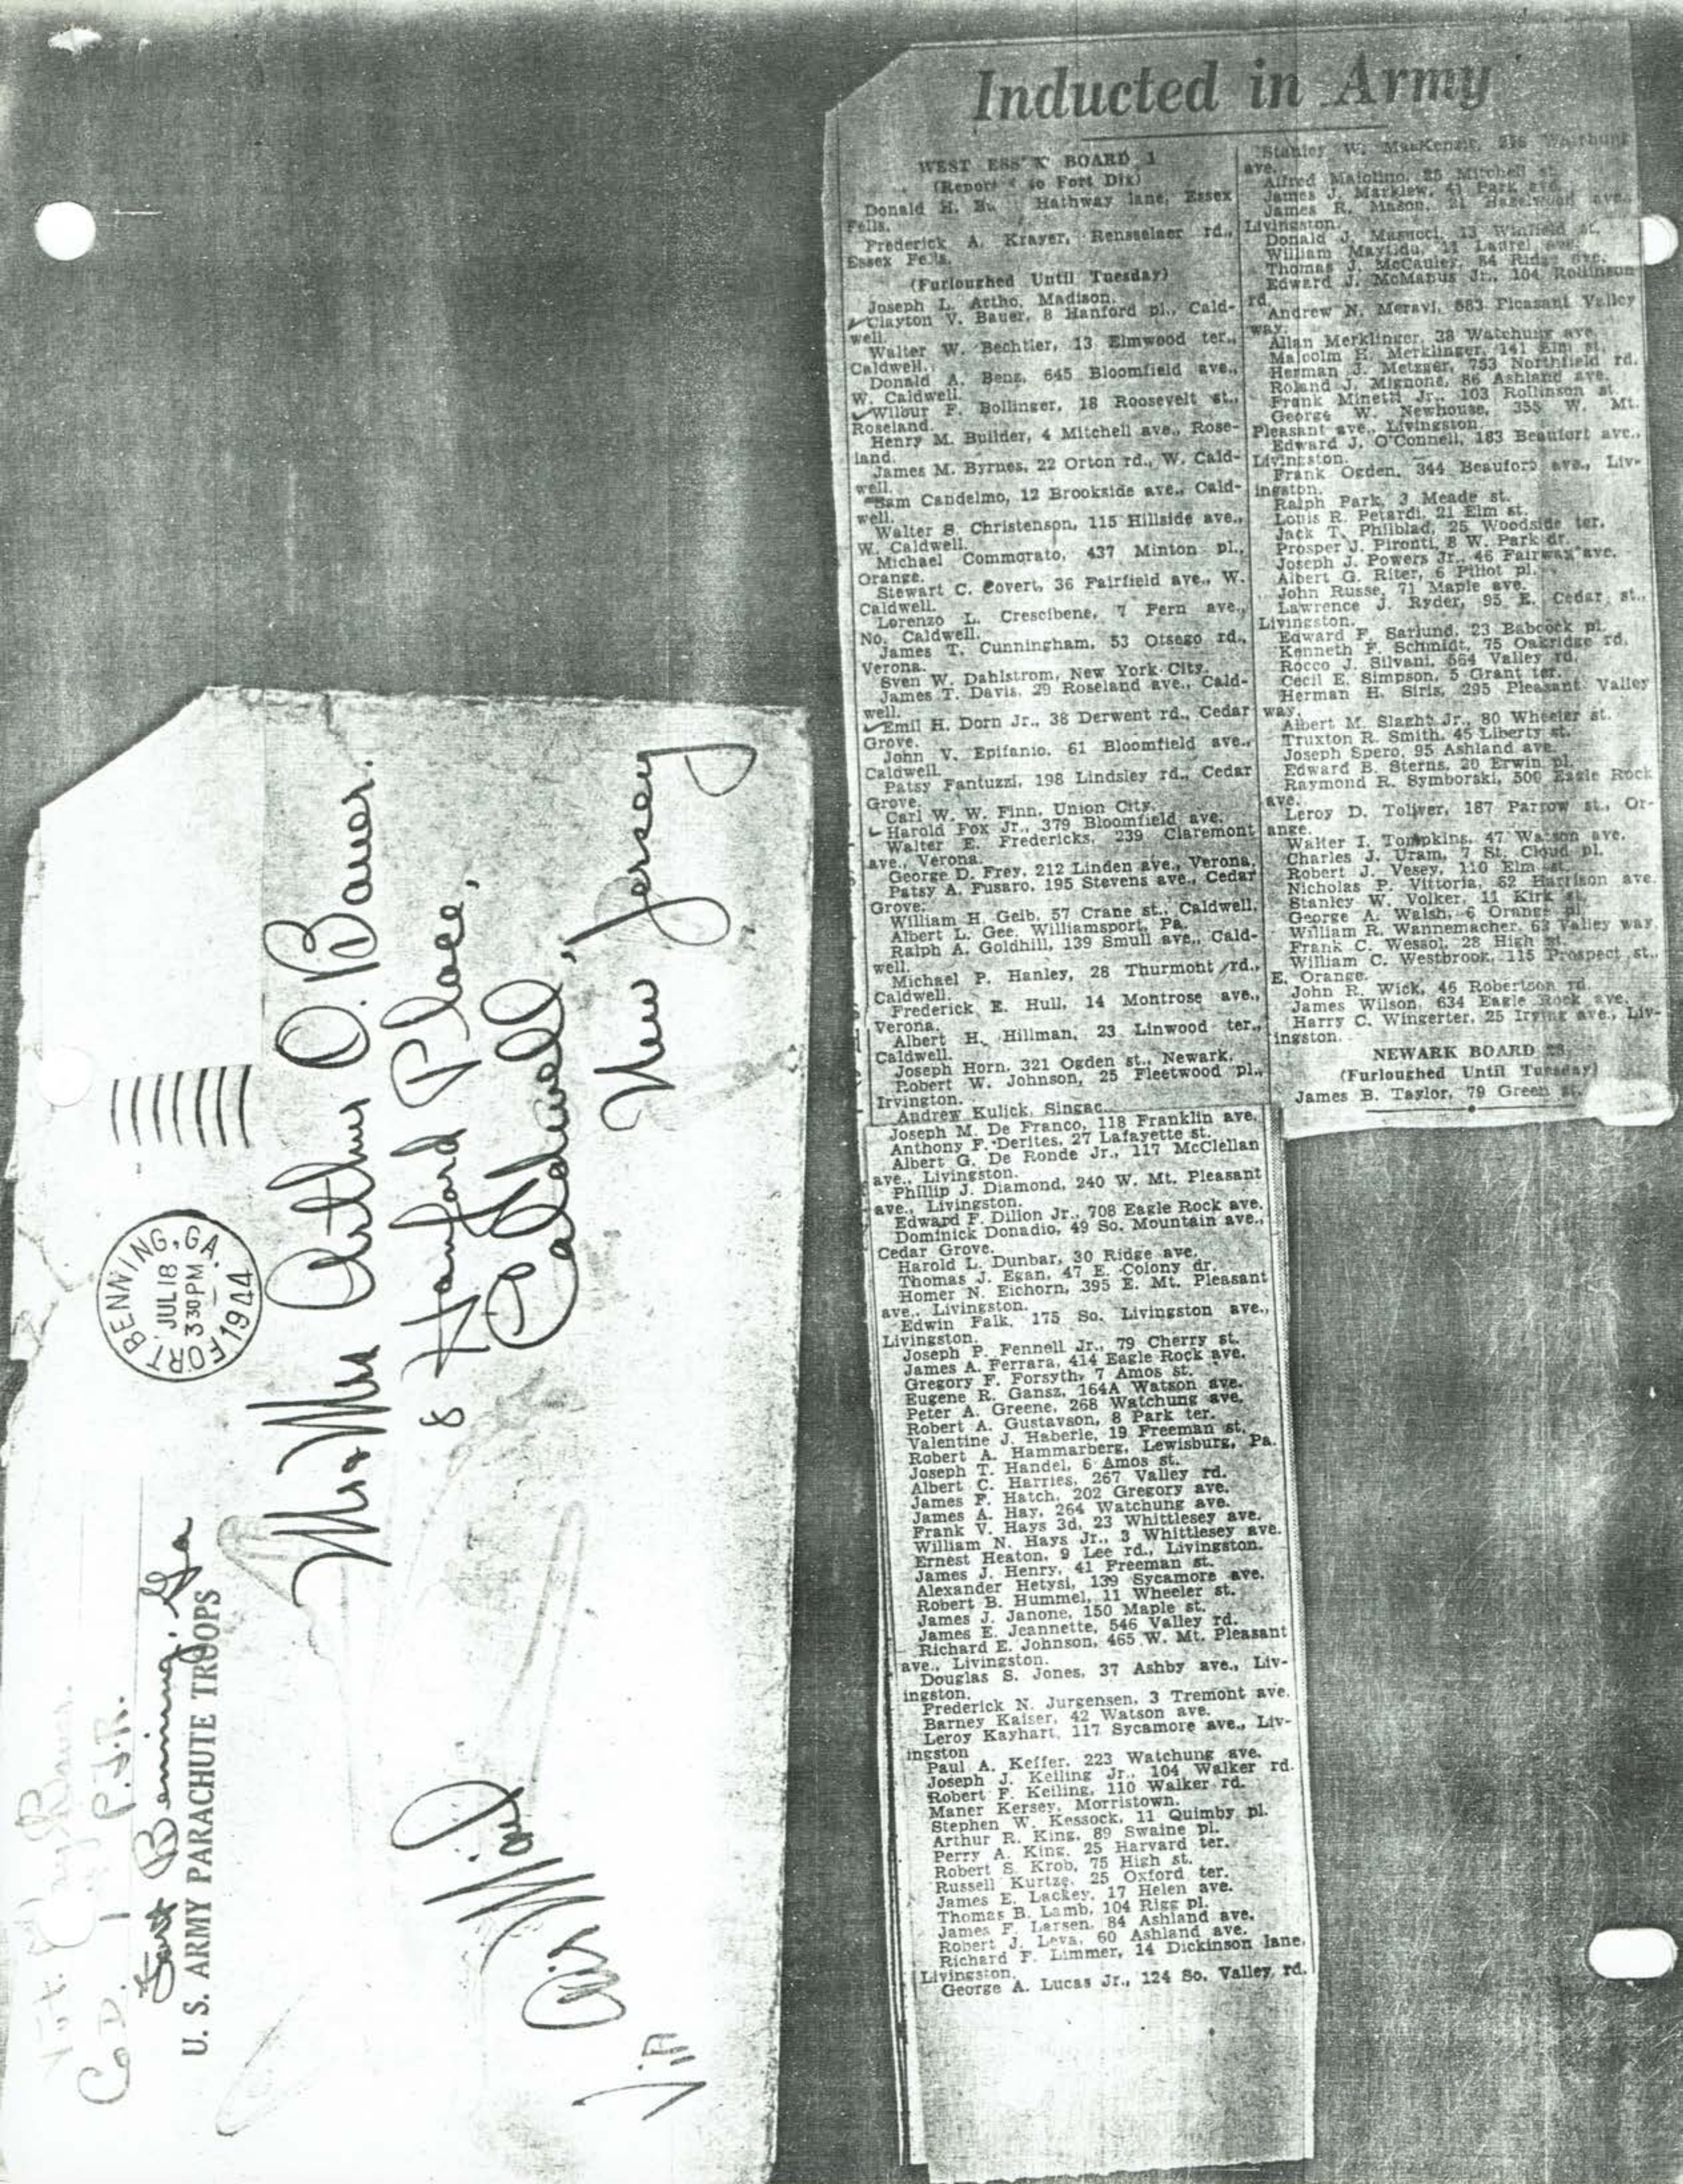 Inducted in Army
WEST ESS X BOARD 1
(Report to Fort Dix)
Donald H. Hathway lane, Essex
Fells.
Frederick A. Krayer, Rensselaer rd.,
Essex Fells.
(Furloughed Until Tuesday)
Joseph L. Artho, Madison.
Clayton V. Bauer, 8 Hanford pl., Cald-
well.
Walter W. Bechtler, 13 Elmwood ter.,
Caldwell.
Donald A. Benz, 645 Bloomfield ave.,
W. Caldwell.
Wilbur F. Bollinger, 18 Roosevelt st.,
Roseland.
Henry M. Builder, 4 Mitchell ave., Rose-
land.
James M. Byrnes, 22 Orton rd., W. Cald-
well.
Sam Candelmo, 12 Brookside ave., Cald-
well.
Walter S. Christenson, 115 Hillside ave.,
W. Caldwell.
Michael Commorato, 437 Minton pl.,
Orange.
Stewart C. Covert, 36 Fairfield ave., W.
Caldwell.
Lorenzo L. Crescibene, 7 Fern ave.,
No. Caldwell.
James T. Cunningham, 53 Otsego rd.,
Verona.
Sven W. Dahlstrom, New York City.
James T. Davis, 29 Roseland ave., Cald-
well.
Emil H. Dorn Jr., 38 Derwent rd., Cedar
Grove.
John V. Epifanio, 61 Bloomfield ave.,
Caldwell.
Patsy Fantuzzi, 198 Lindsley rd., Cedar
Grove.
Carl W. W. Finn, Union City.
Harold Fox Jr., 379 Bloomfield ave.
Walter E. Fredericks, 239 Claremont
ave., Verona.
George D. Frey, 212 Linden ave., Verona.
Patsy A. Fusaro, 195 Stevens ave., Cedar
Grove.
William H. Gelb, 57 Crane st., Caldwell.
Albert L. Gee, Williamsport, Pa.
Ralph A. Goldhill, 139 Smull ave., Cald-
well.
Michael P. Hanley, 28 Thurmont rd.,
Caldwell.
Frederick E. Hull, 14 Montrose ave.,
Verona.
Albert H. Hillman, 23 Linwood ter.,
Caldwell.
Joseph Horn, 321 Ogden st., Newark.
Robert W. Johnson, 25 Fleetwood pl.,
Irvington.
Andrew Kulick, Singac.
Joseph M. De Franco, 118 Franklin ave.
Anthony F. Derites, 27 Lafayette st.
Albert G. De Ronde Jr., 117 McClellan
ave., Livingston.
Phillip J. Diamond, 240 W. Mt. Pleasant
ave., Livingston.
Edward F. Dillon Jr., 708 Eagle Rock ave.
Dominick Donadio, 49 So. Mountain ave.,
Cedar Grove.
Harold L. Dunbar, 30 Ridge ave.
Thomas J. Egan, 47 E. Colony dr.
Homer N. Eichorn, 395 E. Mt. Pleasant
ave., Livingston.
Edwin Falk, 175 So. Livingston ave.,
Livingston.
Joseph P. Fennell Jr., 79 Cherry st.
James A. Ferrara, 414 Eagle Rock ave.
Gregory F. Forsyth, 7 Amos st.
Eugene R. Gansz, 164A Watson ave.
Peter A. Greene, 268 Watchung ave.
Robert A. Gustavson, 8 Park ter.
Valentine J. Haberle, 19 Freeman st.
Robert A. Hammarberg, Lewisburg, Pa.
Joseph T. Handel, 6 Amos st.
Albert C. Harries, 267 Valley rd.
James F. Hatch, 202 Gregory ave.
James A. Hay, 264 Watchung ave.
Frank V. Hays 3d, 23 Whittlesey ave.
William N. Hays Jr., 3 Whittlesey ave.
Ernest Heaton, 9 Lee rd., Livingston.
James J. Henry, 41 Freeman st.
Alexander Hetysi, 139 Sycamore ave.
Robert B. Hummel, 11 Wheeler st.
James J. Janone, 150 Maple st.
James E. Jeannette, 546 Valley rd.
Richard E. Johnson, 465 W. Mt. Pleasant
ave., Livingston.
Douglas S. Jones, 37 Ashby ave., Liv-
ingston.
Frederick N. Jurgensen, 3 Tremont ave.
Barney Kaiser, 42 Watson ave.
Leroy Kayhart, 117 Sycamore ave., Liv-
ingston
Paul A. Keffer, 223 Watchung ave.
Joseph J. Keiling Jr., 104 Walker rd.
Robert F. Keiling, 110 Walker rd.
Maner Kersey, Morristown.
Stephen W. Kessock, 11 Quimby pl.
Arthur R. King, 89 Swaine pl.
Perry A. King, 25 Harvard ter.
Robert S. Krob, 75 High st.
Russell Kurtze, 25 Oxford ter.
James E. Lackey, 17 Helen ave.
Thomas B. Lamb, 104 Rigg pl.
James F. Larsen, 84 Ashland ave.
Robert J. Leva, 60 Ashland ave.
Richard F. Limmer, 14 Dickinson lane,
Livingston.
George A. Lucas Jr., 124 So. Valley rd.
Stanley W. MacKenzie,
ave.
Alfred Maiolino, 25 Mitchell st.
James J. Marklew, 41 Park ave.
James R. Mason, 21 Hazelwood ave.,
Livingston.
Donald J. Masucci, 13 Winfield st.
William 11 Laurel ave.
Thomas J. McCauley, 84 Ridge ave.
Edward J. McManus Jr., 104 Rollinson
rd.
Andrew N. Meravi, 583 Pleasant Valley
way.
Allan Merklinger, 38 Watchung ave.
Malcolm H. Merklinger, 141 Elm st.
Herman J. Metzger, 753 Northfield rd.
Roland J. Mignone, 86 Ashland ave.
Frank Minetti Jr., 103 Rollinson st.
George W. Newhouse, 355 W. Mt.
Pleasant ave., Livingston.
Edward J. O'Connell, 183 Beaufort ave.,
Livingston.
Frank Ogden, 344 Beaufort ave., Liv-
ingston.
Ralph Park, 3 Meade st.
Louis R. Petardi, 21 Elm st.
Jack T. Philblad, 25 Woodside ter.
Prosper J. Pironti, 8 W. Park dr.
Joseph J. Powers Jr., 46 Fairway ave.
Albert G. Riter, 6 Pillot pl.
John Russe, 71 Maple ave.
Lawrence J. Ryder, 95 E. Cedar st.,
Livingston.
Edward F. Sarlund, 23 Babcock pl.
Kenneth F. Schmidt, 75 Oakridge rd.
Rocco J. Silvani, 564 Valley rd.
Cecil E. Simpson, 5 Grant ter.
Herman H. Siris, 295 Pleasant Valley
way.
Albert M. Slaght Jr., 80 Wheeler st.
Truxton R. Smith, 45 Liberty st.
Joseph Spero, 95 Ashland ave.
Edward B. Sterns, 20 Erwin pl.
Raymond R. Symborski, 500 Eagle Rock
ave.
Leroy D. Toliver, 187 Parrow st., Or-
ange.
Walter I. Tompkins, 47 Watson ave.
Charles J. Uram, 7 St. Cloud pl.
Robert J. Vesey, 110 Elm st.
Nicholas P. Vittoria, 62 Harrison ave.
Stanley W. Volker, 11 Kirk st.
George A. Walsh, 6 Orange pl.
William R. Wannemacher, 63 Valley way.
Frank C. Wessol, 28 High st.
William C. Westbrook, 115 Prospect st.,
E. Orange.
John R. Wick, 46 Robertson rd.
James Wilson, 634 Eagle Rock ave.
Harry C. Wingerter, 25 Irving ave., Liv-
ingston.
NEWARK BOARD
(Furloughed Until Tuesday)
James B. Taylor, 79 Green st.
Co. D. 1 P.T.R.
Fort Benning, Ga
U. S. ARMY PARACHUTE TROOPS
FORT BENNING, GA.
JUL 18
3 30 PM
1944
Mr & Mrs Arthur O. Bauer.
8 Hanford Place,
Caldwell,
New Jersey
Air Mail